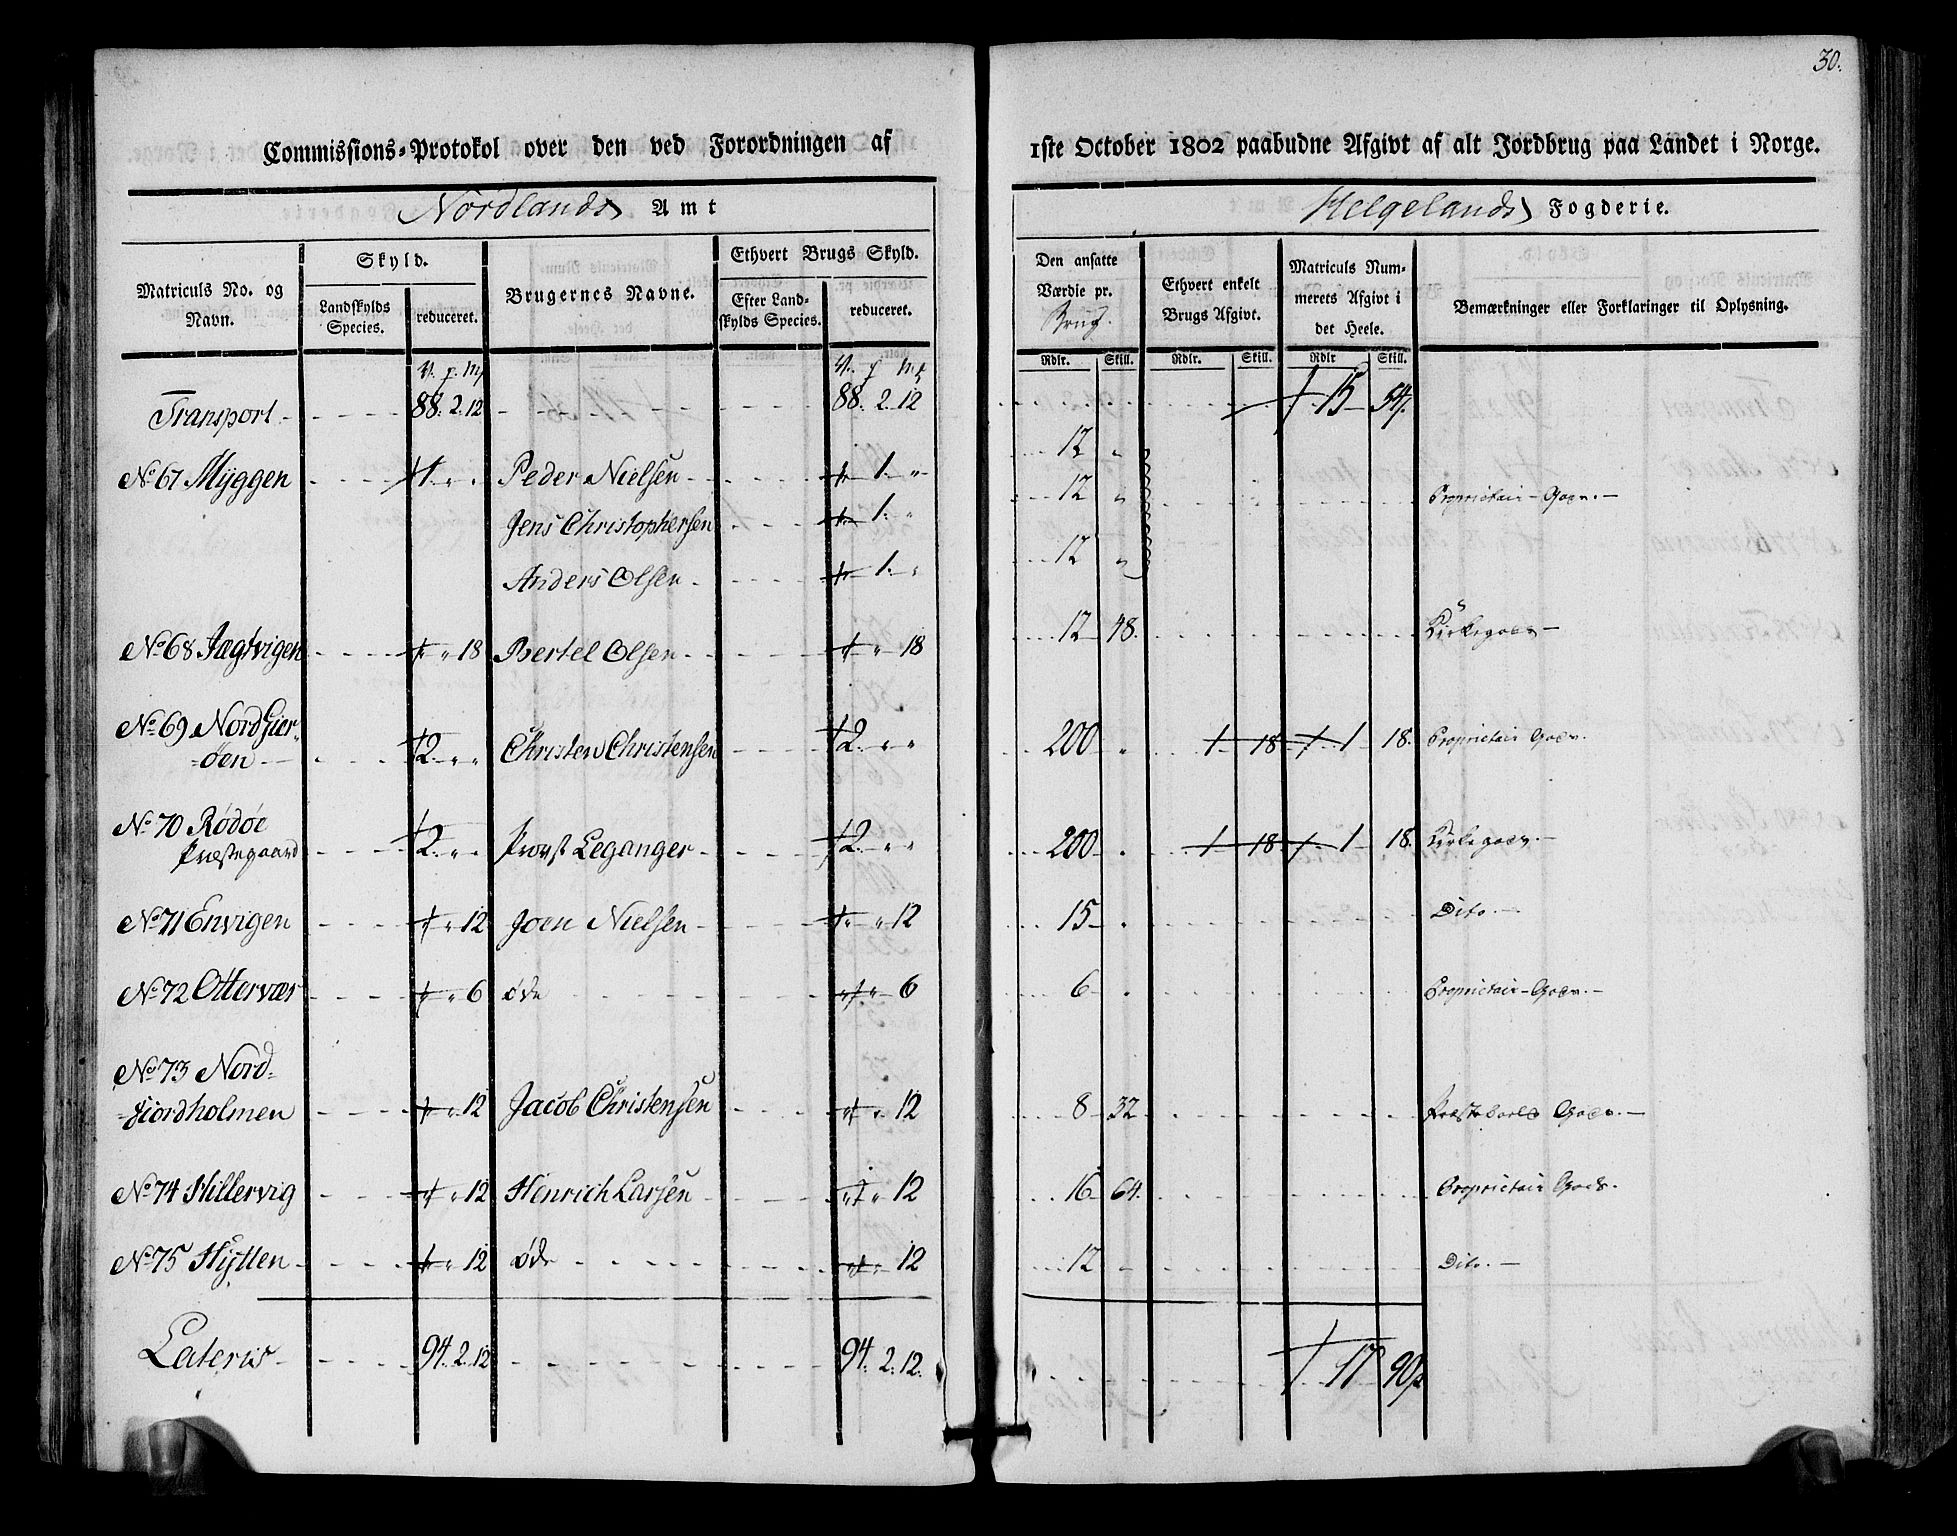 30.
Commissions-Protokol over den ved Forordningen af 1ste October 1802 paabudne Afgivt af alt Jordbrug paa Landet i Norge.
Nordlands Amt Helgelands Fogderie.
Matriculs No. og Navn. Skyld. Landskylds Species. reduceret. Brugernes Navne. Ethvert Brugs Skyld. Efter Landskylds Species. reduceret. Den ansatte Værdie pr. Brug. Ethvert enkelt Brugs Afgivt. Matriculs Nummerets Afgivt i det Heele. Bemærkninger eller Forklaringer til Oplysning.
V. p. M V. p M Rdlr. Skill. Rdlr. Skill. Rdlr Skill.
Transport 88. 2. 12 88. 2. 12 15 54.
No 67 Myggen 1. " " Peder Nielsen 1. " 12 "
Jens Christophersen 1. " 12 " Proprietair-Gods.
Anders Olsen 1. " 12 "
No 68 Jægtvigen " 18 Bertel Olsen " 18 12 48. Kirkegods
No 69 Nordfjer-
öen 2. " " Christen Christensen 2. " " 200 " 1 18 1 18. Proprietair Gods.
No 70 Rödöe
Præstegaard 2. " " Provst Leganger 2. " " 200 . 1 18 1 18. Kirkegods.
No 71 Envigen " 12 Joen Nielsen " 12 15 . Dito.
No 72 Ottervær " 6 øde " 6 6 . Proprietair-Gods.
No 73 Nord-
fjordholmen " 12 Jacob Christensen " 12 8 32 Præstebords Gods.
No 74 Hillervig " 12 Henrich Larsen " 12 16 64. Proprietair Gods.
No 75 Hytten " 12 øde " 12 12 Dito.
Lateris 94. 2. 12 94. 2. 12. 17 90